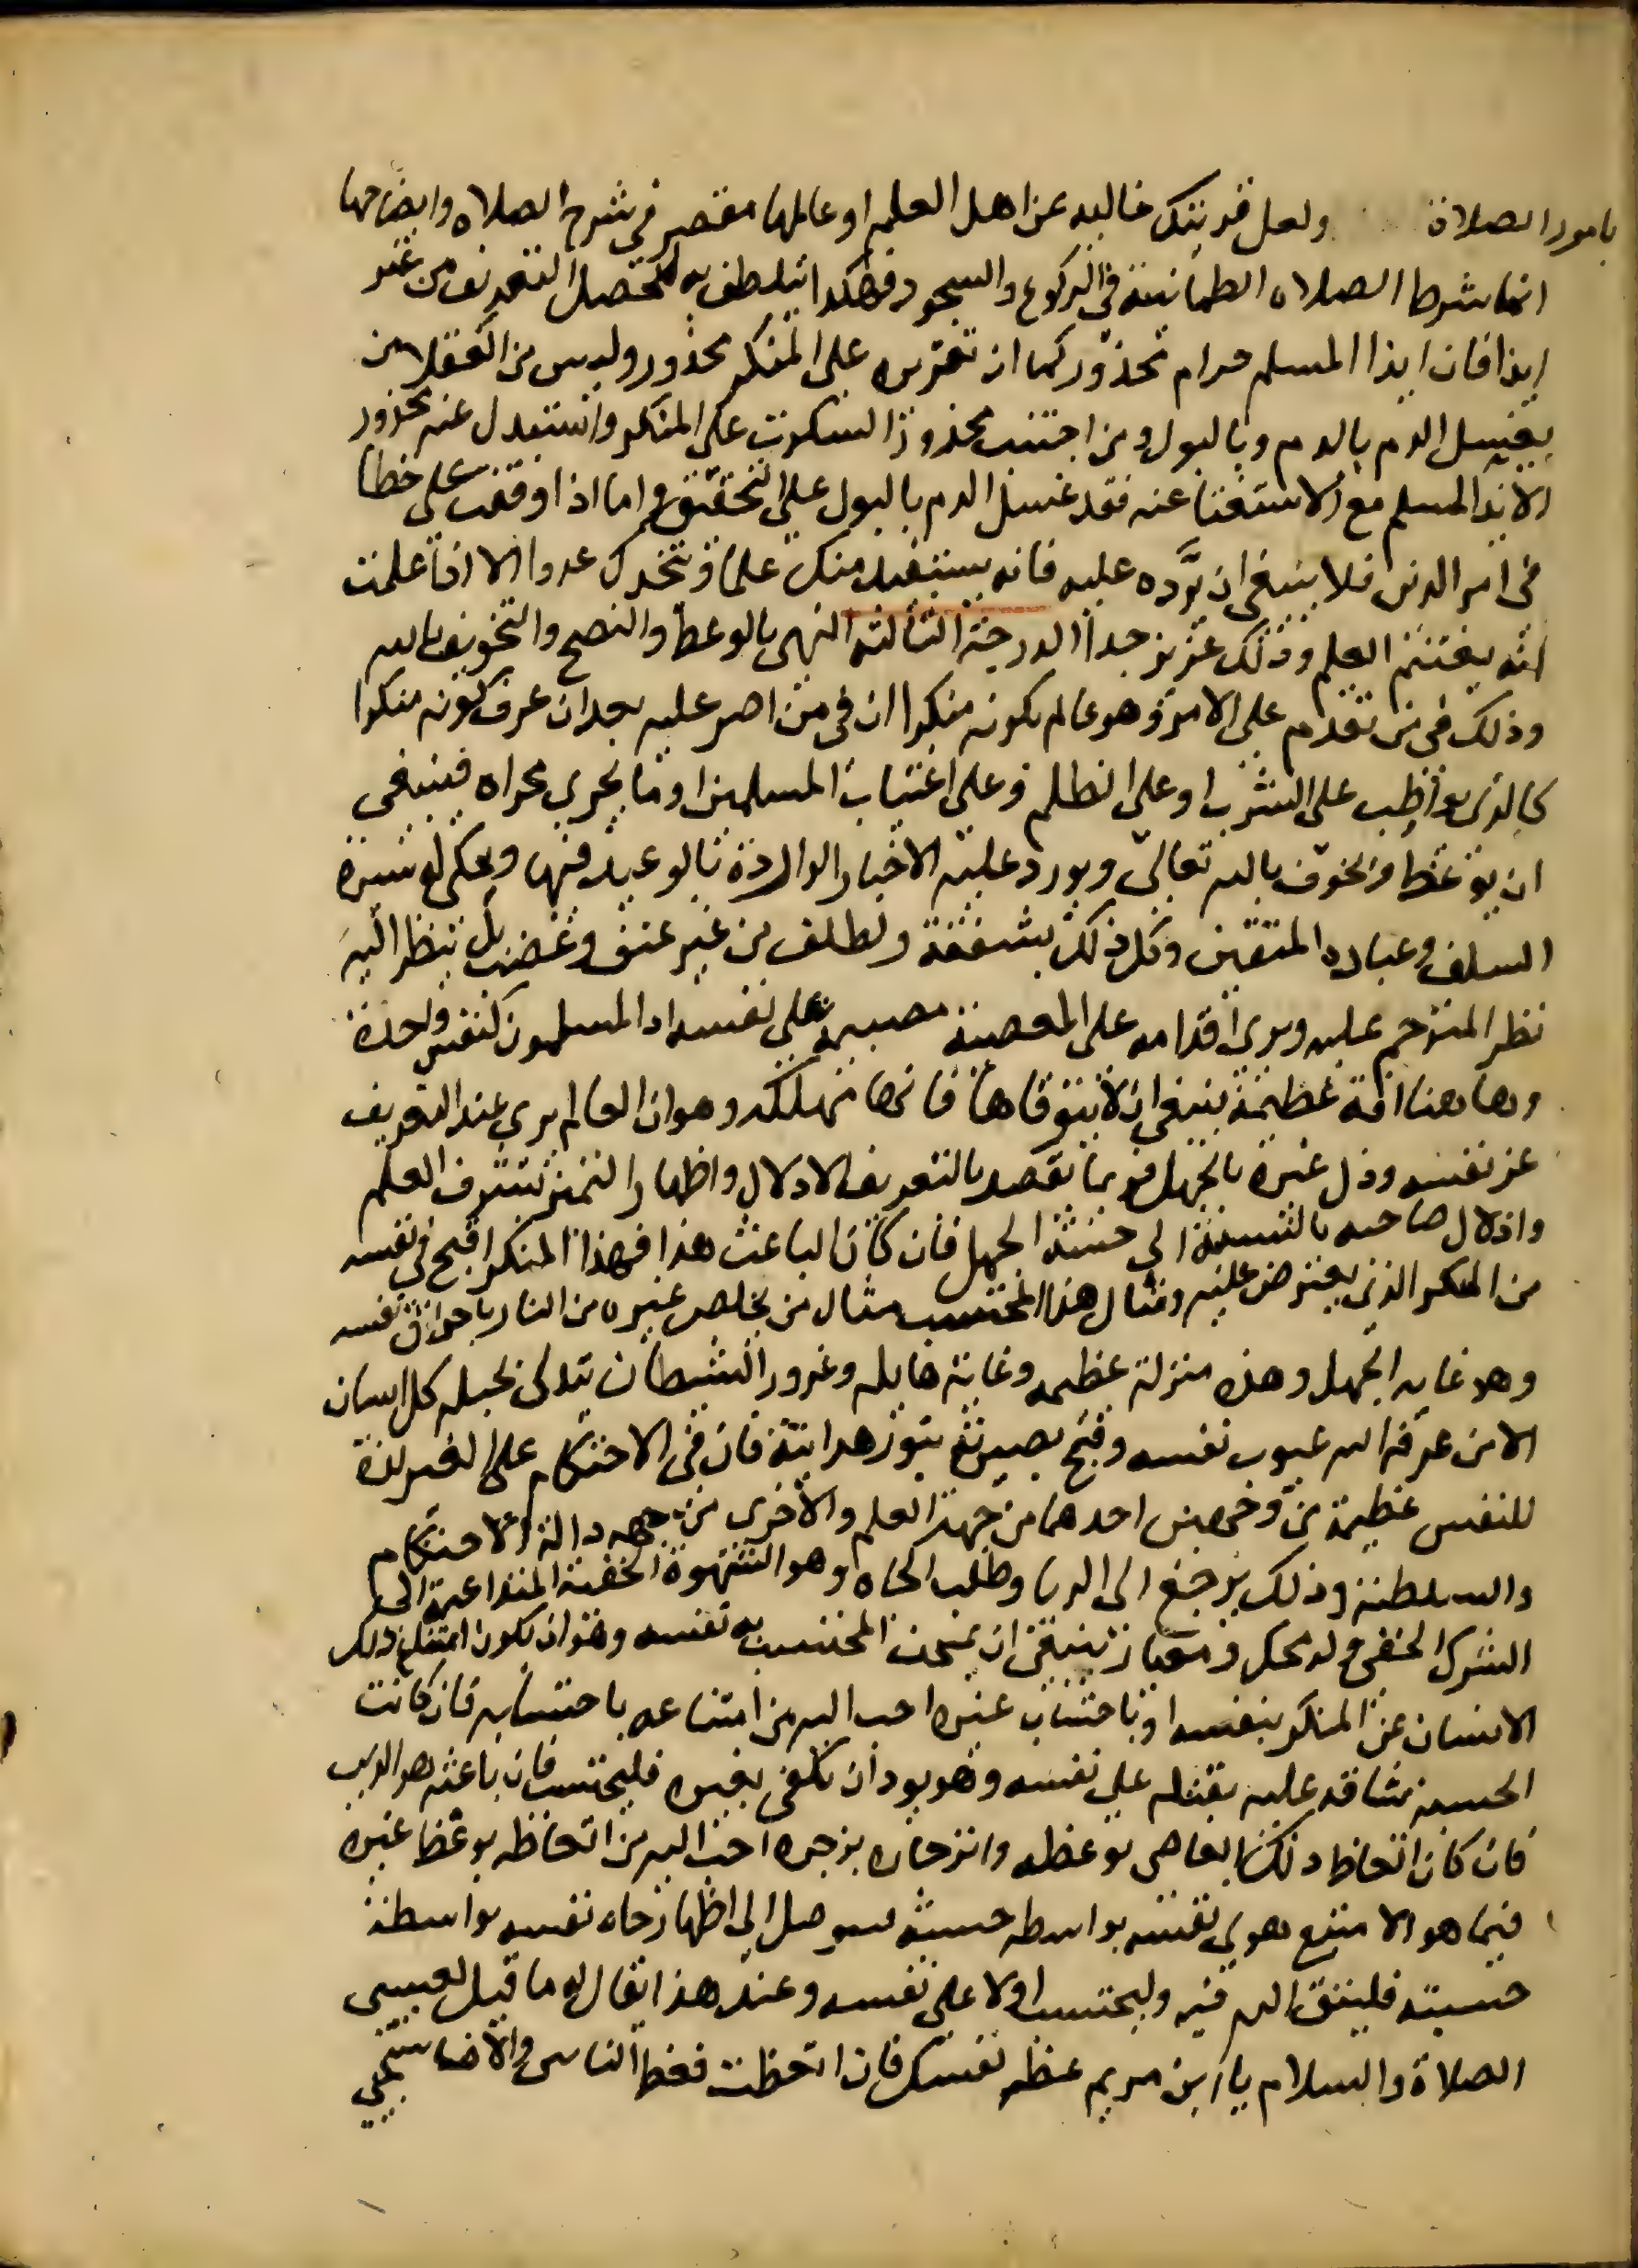 بامور الصلاة ولعل قريتك خاليه عن اهل العلم او عالمها مقصر في شرح الصلاه وايضاحها
انما شرط الصلاه الطمانينة في الركوع والسجود فهكدا يتلطف به لتحصل التعريف من غير
ايذا فان ايذا المسلم حرام محذور كما ان تقريره على المنكر محذور وليس من العقلا من
يغسل الدم بالدم وبالبول ومن اجتنب محذور السكوت على المنكر واستبدل عنه محذور
الايذا المسلم مع الاستغنا عنه فقد غسل الدم بالبول على التحقيق واما اذا وقفت على خطا
في امر الدين فلا ينبغي ان ترده عليه فانه يستفيد منك علما ويتخدك عدوا الا اذا علمت
انه يغتنم العلم وذلك عزيز جداً الدرجة الثالثه النهي بالوعظ والنصح والتخويف بالله
وذلك في من تقدم على الامر وهو عالم بكونه منكرا ان في من اصر عليه بعد ان عرف كونه منكرا
كالذي يواظب على الشرب او على الظلم وعلى اغتياب المسلمين او ما يجري مجراه فينبغي
ان يوعظ ويخوف بالله تعالى ويورد عليه الاخبار الواردة بالوعيد فيها ويحكى له سيرة
السلف وعباده المتقين وكل ذلك بشفقة ولطلف من غير عنف وغضب بل ينظر اليه
نظر المترحم عليه ويرى اقدامه على المعصية مصيبة على نفسه اد المسلمون كنفس واحدة
وهاهنا افة عظيمة ينبغي ان لا يتوقاها فانها مهلكه وهو ان العالم يري عند التعريف
عز نفسه وذل غيره بالجهل فربما يقصد بالتعريف الادلال واظهار التميز بشرف العلم
واذلال صاحبه بالنسبة الى خسة الجهل فان كان الباعث هذا فهذا المنكر اقبح في نفسه
من المنكر الذي يعترض عليه ومثال هذا المحتسب مثال من يخلص غيره من النار باحراق نفسه
وهو غايه الجهل وهذه منزلة عظيمه وغاية هايله وغرور الشيطان يتدلى بحبله كل انسان
الا من عرفه الله عيوب نفسه وفتح بصيرته بنور هدايته فان في الاحتكام على الغير لذة
للنفس عظيمة من وجهين احدهما من جهة العلم والاخرى من جهه دالة الاحتكام
والسلطنة وذلك يرجع الى الريا وطلب الجاه وهو الشهوة الخفية المتداعية الى
الشرك الخفي وله محك ومعيار ينبغي ان يمتحن المحتسب به نفسه وهو ان يكون امتناع ذلك
الانسان عن المنكر بنفسه او باحتساب غيره احب اليه من امتناعه باحتسابه فان كانت
الحسبة شاقه عليه ثقيله على نفسه وهو يود ان يكفى بغيره فليحتسب فان باعثه هو الدين
فان كان اتعاظ ذلك العاصي بوعظه وانزجاره بزجره احب اليه من اتعاظه بوعظ غيره
فيما هو الا متبع هوي نفسه بواسطه حسبته ليوصل الى اظهار جاه نفسه بواسطة
حسبته فليتق الله فيه وليحتسب اولا على نفسه وعند هذا يقال له ما قيل لعيسى
الصلاة والسلام يا ابن مريم عظ نفسك فان اتعظت فعظ الناس والا فاستحي